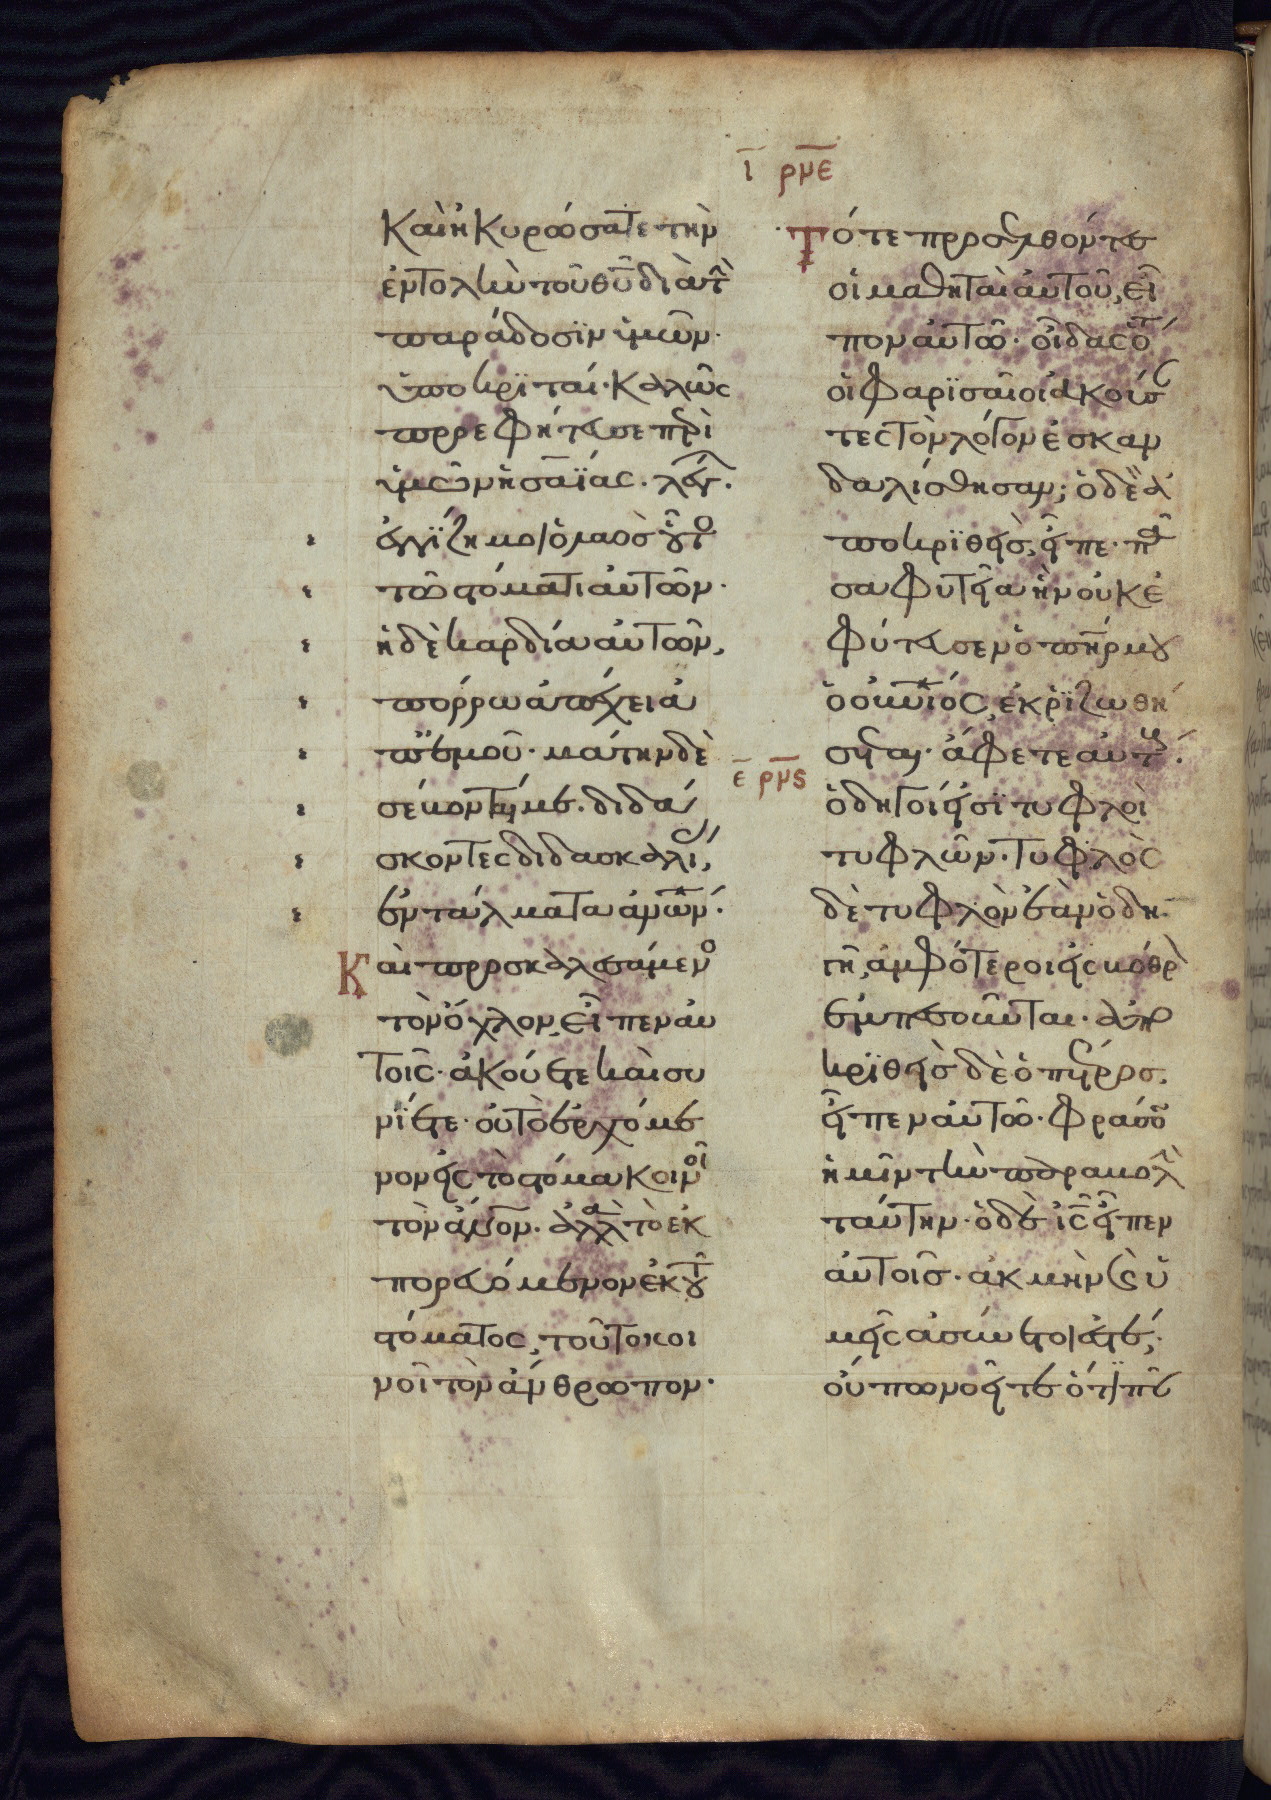 ι̅ ρμε̅
Καὶ ἠκυρώσατε τὴν
ἐντολὴν τοῦ θῡ διὰ τ̀
παράδοσϊν ὑμῶν·
ὑποκρϊταί· Καλῶς
προεφήτευσε περὶ
ὑμῶν ἡσαΐας· λέγ·
ἐγγΐζει μοι ὁ λαὸσ οὗτο
τῶ στόματι αὐτῶν·
ἡ δὲ καρδία αὐτῶν,
πόρρω ἀπέχει ἀ
π' ἐμοῦ· μάτην δὲ
σέβονταί με· διδά
σκοντες διδασκαλί,
ἐντάλματα ἀνων̅·
Καὶ προσκαλεσάμενο
τὸν ὄχλον, εἶπεν αὐ
τοῖς· ἀκούετε καὶ συ
νΐετε· οὐ τὸ ἐρχόμε
νον εἰς τὸ στόμα κοινοῖ
τὸν ἀνο̅ν· ἀλλὰ τὸ ἐκ
πορευόμενον ἐκ τοῦ
στόματος, τοῦτο κοι
νοῖ τὸν ἄνθρωπον·
Τότε προσελθόντες
οἱ μαθηταὶ αὐτοῦ, εἶ
πον αὐτῶ· οἶδας ὅτ
οἱ φαρϊσαῖοι ἀκούσ
τες τὸν λόγον ἐσκαν
δαλίσθησαν; ὁ δὲ ἀ
ποκρϊθεὶσ, εἶπε· πᾶ
σα φυτεῖα ἣν οὐκ ἐ
φύτευσεν ὁ πη̅ρ μου
ὁ οὐνιο̅ς, ἐκρϊζωθή
σεται· ἄφετε αὐτούς·
ε̅ ρμϛ̅
ὁδηγοί εἰσϊ τυφλοὶ
τυφλῶν· τυφλὸς
δὲ τυφλὸν ἐὰν ὁδη
γῆ, ἀμφότεροι εἰς βόθρ
ἐμπεσοῦνται· ἀπο
κρϊθεὶσ δὲ ὁ πέτροσ·
εἶπεν αὐτῶ· φράσο
ἡμῖν τὴν παραβολὴ
ταύτην· ὁ δὲ ις̅ εἶπεν
αὐτοῖσ· ἀκμὴν καὶ ὑ
μεῖς ἀσύνετοί ἐστε;
οὔπω νοεῖτε ὅτι πᾶ